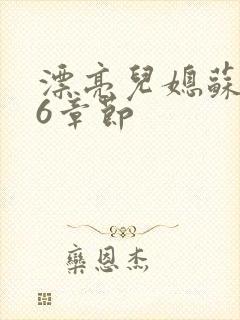 漂亮兒媳蘇
6章節
欒恩杰